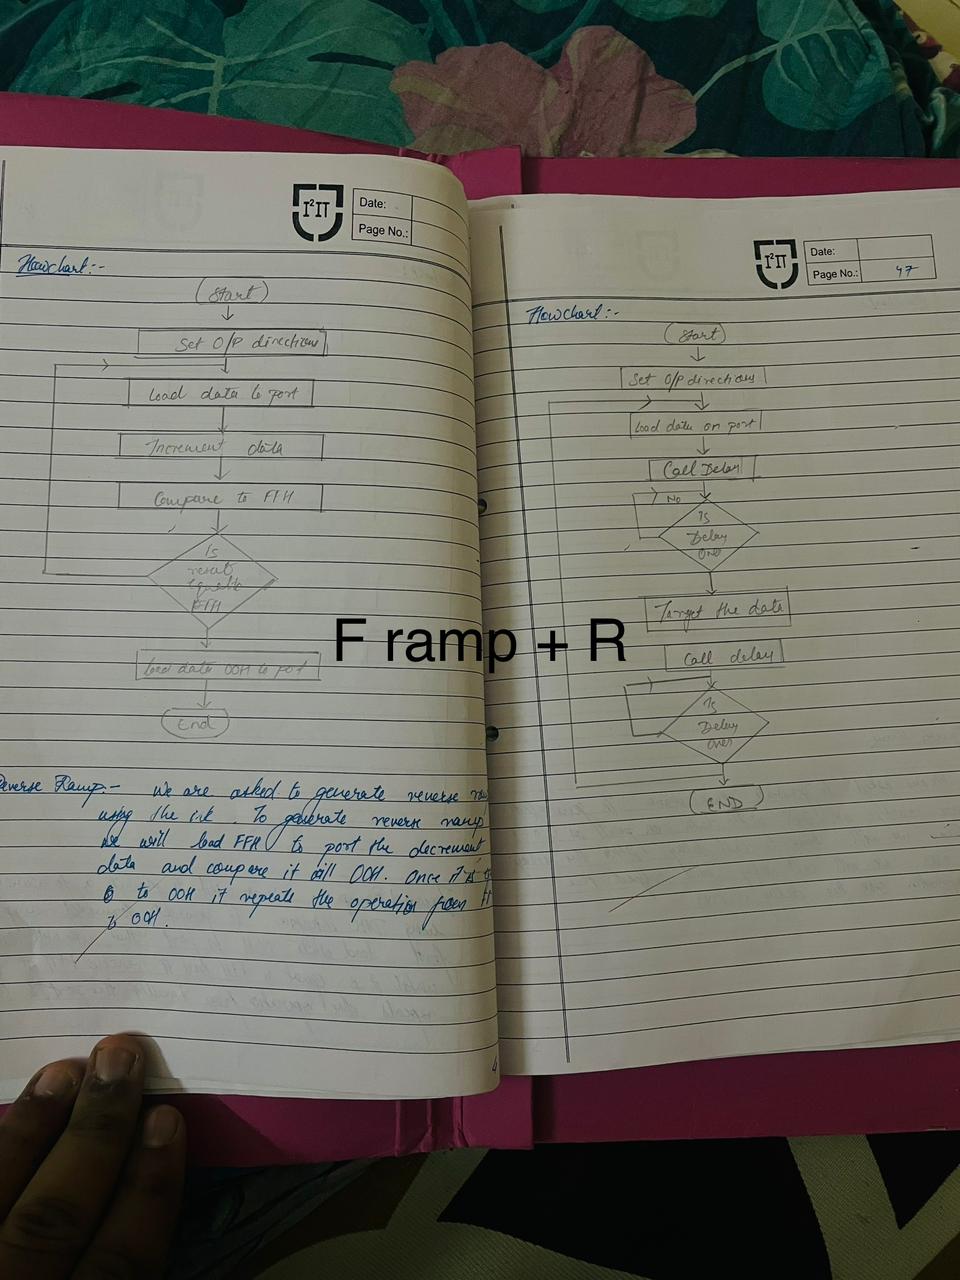 I²IT
Date:
Page No.:
Flowchart :-
Start
Set O/P directions
Load data to port
Increment data
Compare to FFH
Is
result
equal to
FFH
Load data 00H to port
End
Reverse Ramp :- We are asked to generate reverse
using the . To generate reverse ramp
we will load FFH to port the decrement
data and compare it till 00H. Once it is
to 00H it repeats the operation from
to 00H.
I²IT
Date:
Page No.: 47
Flowchart :-
Start
Set O/P directions
Load data on port
Call Delay
No
Is
Delay
over
Target the data
Call delay
Is
Delay
over
END
F ramp + R